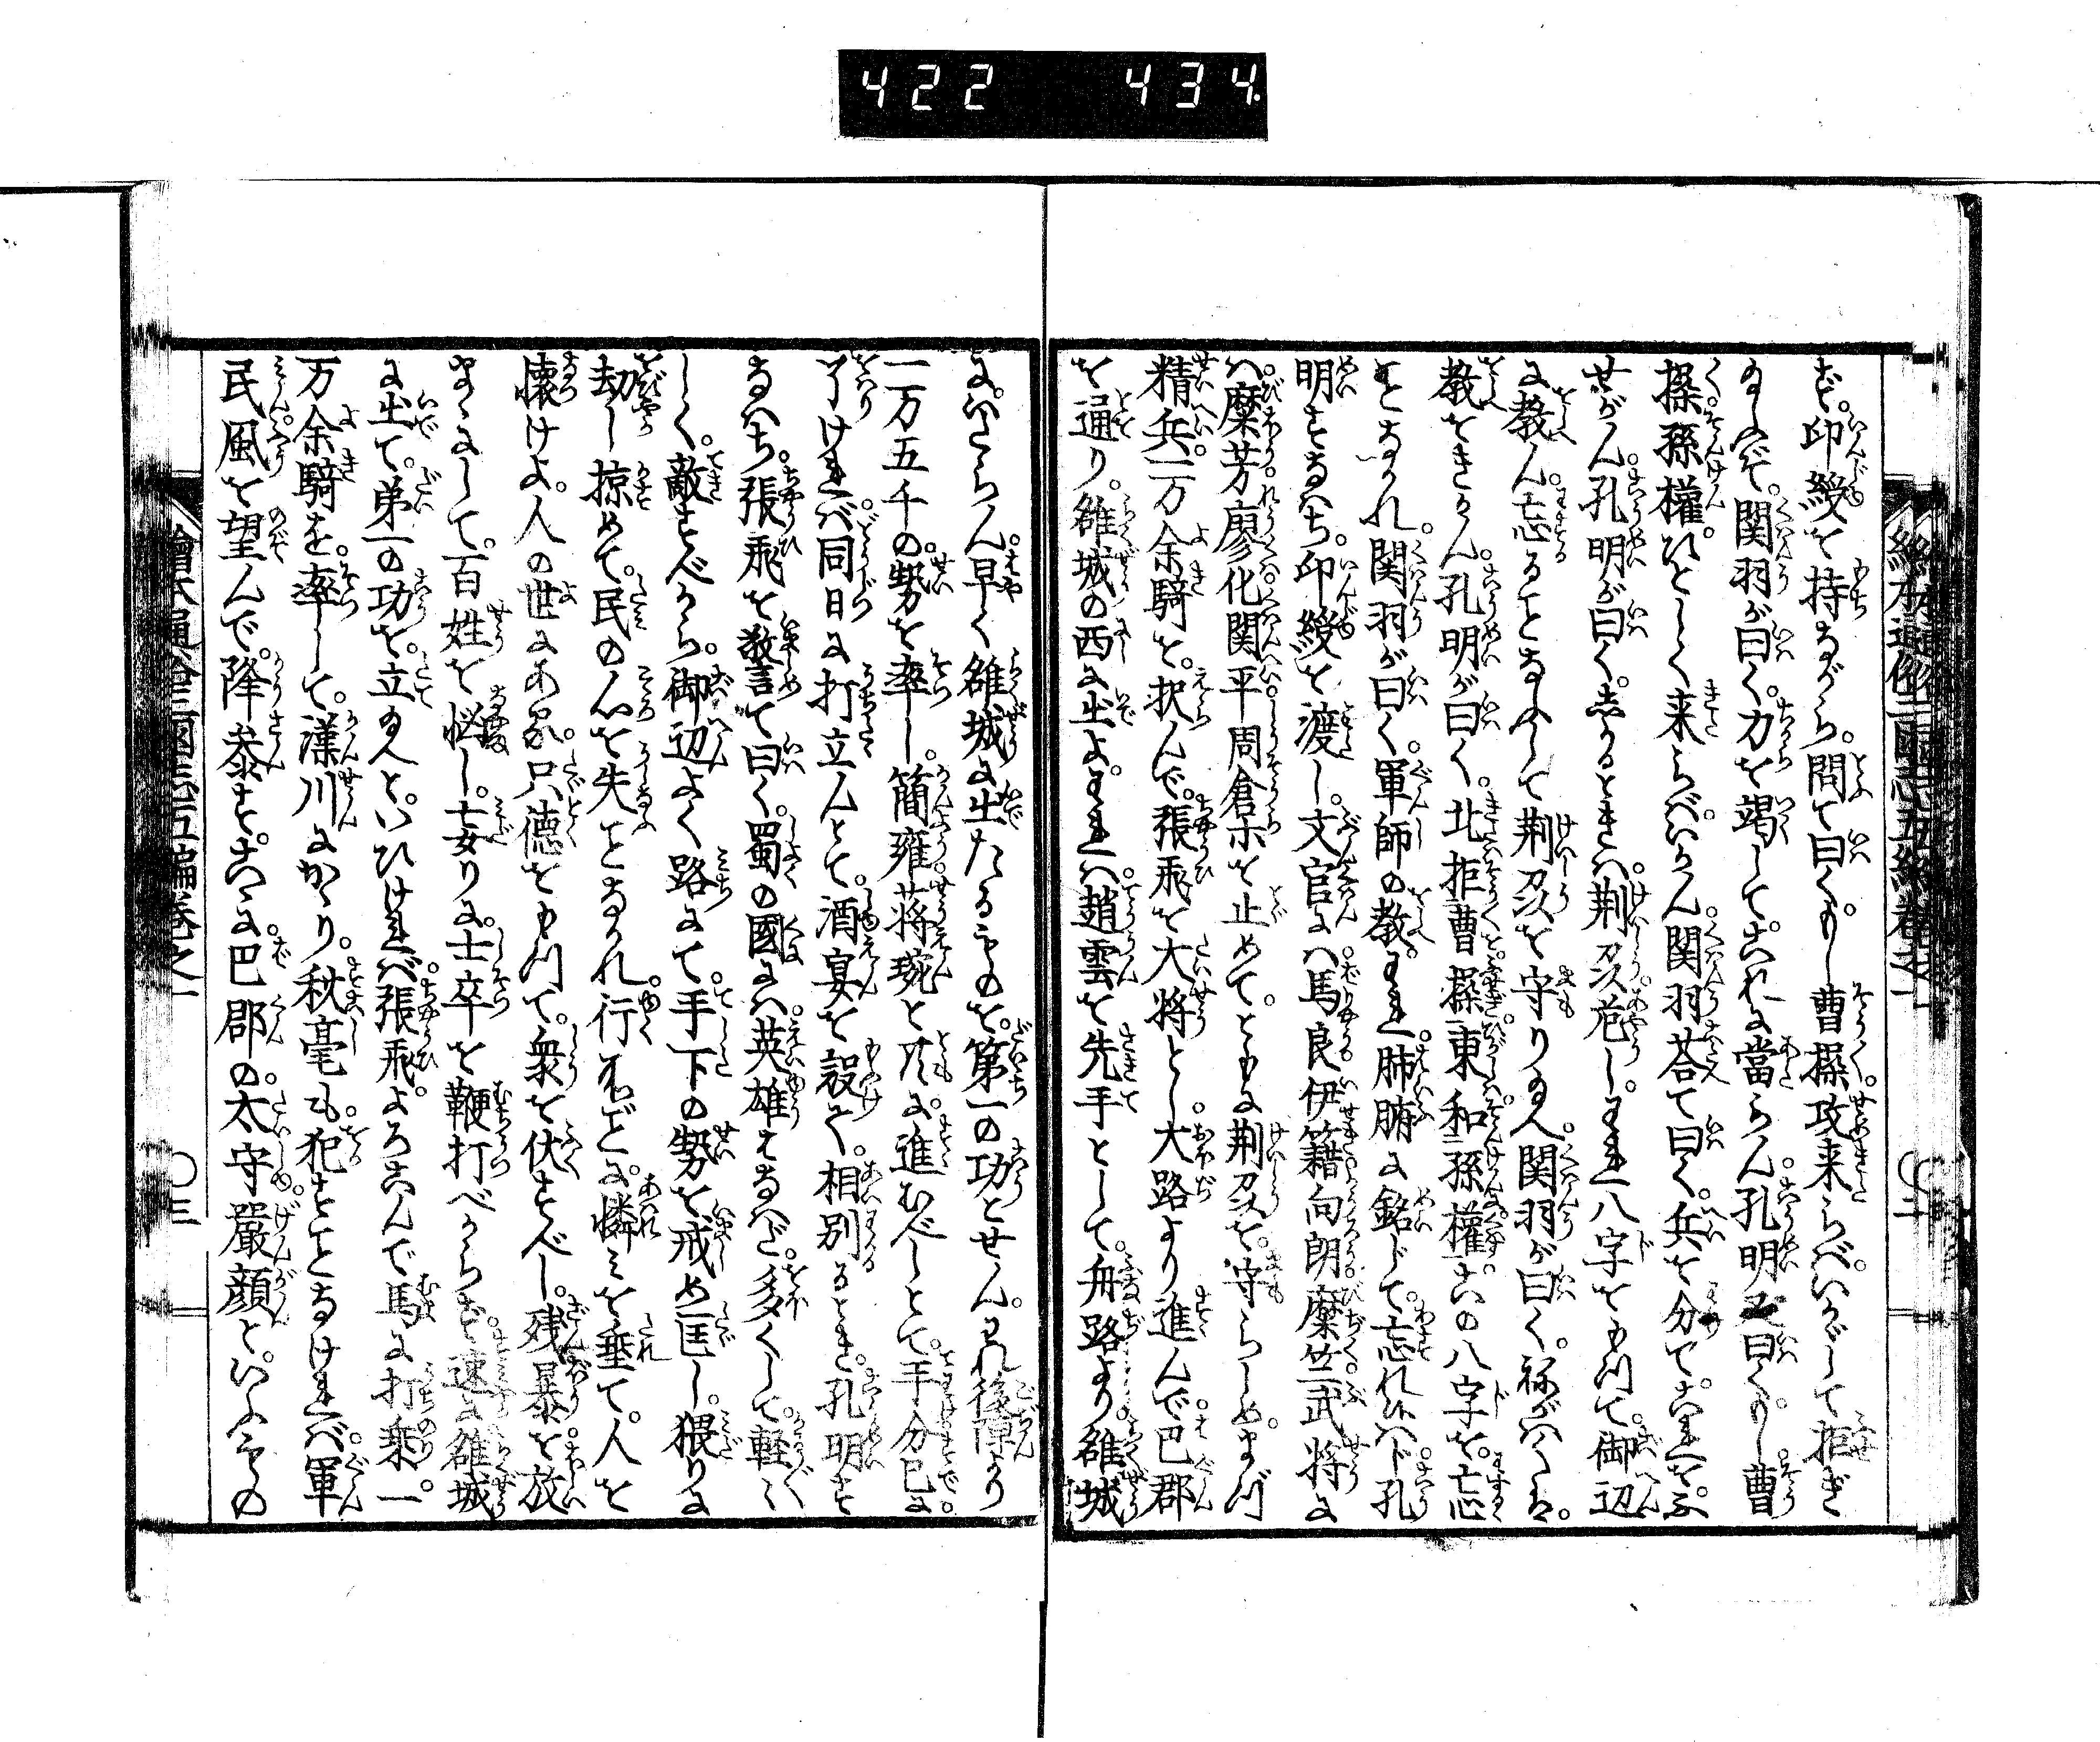 422 434
ず。印綬を持ながら。問て曰く。もし曹操攻来らバ。いかゞして拒ぎ
給んぞ。関羽が曰く。力を竭してこれに當らん。孔明又曰く。もし曹
操孫權。ひとしく来らバいかん。関羽荅て曰く。兵を分て。これをふ
せがん。孔明が曰く。しかるときハ。荆州危し。われ八字をもつて。御辺
に教へん。忘るゝことなふして荆州を守り給へ。関羽が曰く。祢がハくハ。
教をきかん。孔明が曰く。北拒曹操。東和孫權この八字を。忘
ことなかれ。関羽が曰く。軍師の教。われ肺腑に銘じて。忘れじ。孔
明すなハち。印綬を渡し。文官にハ。馬良伊籍向朗糜竺武将に
ハ。糜芳廖化関平周倉ホを止めて。ともに荆州を。守らしめ。まづ
精兵。一万余騎を。択んで。張飛を大将とし。大路より進んで。巴郡
を通り。雒城の西に出よ。われハ。趙雲を先手として。舟路より。雒城
にいたらん。早く雒城に出たるものを。第一の功とせん。われ後陣より
一万五千の勢を率し。簡雍。蒋琬と共に。進むべしとて。手分已に
了けれバ。同日に打立んとて。酒宴を設く。相別るゝとき。孔明す
なハち。張飛を警て曰く。蜀の國にハ。英雄はなハだ。多くして。軽〻
しく。敵すべからず。御辺よく路にて。手下の勢を。戒め匡し。猥りに
劫し掠めて。民の心を失ことなかれ。行ほどに。憐ミを垂て。人を
懐けよ。人の世にある。只徳をもつて。衆を伏すべし。残暴を放
まゝにして。百姓を悩し。妄りに。士卒を鞭打べからず。速に雒城
に出て。第一の功を。立給へと。いひけれバ。張飛。よろこんで馬に打乗。一
万余騎を。率して。漢川にかゝり。秋毫も。犯すことなけれバ。軍
民風を望んで。降参す。こゝに。巴郡の。太守。嚴顔といふもの
繪本通俗三國志五編巻之一 〇二
繪本通俗三國志五編巻之一 〇三